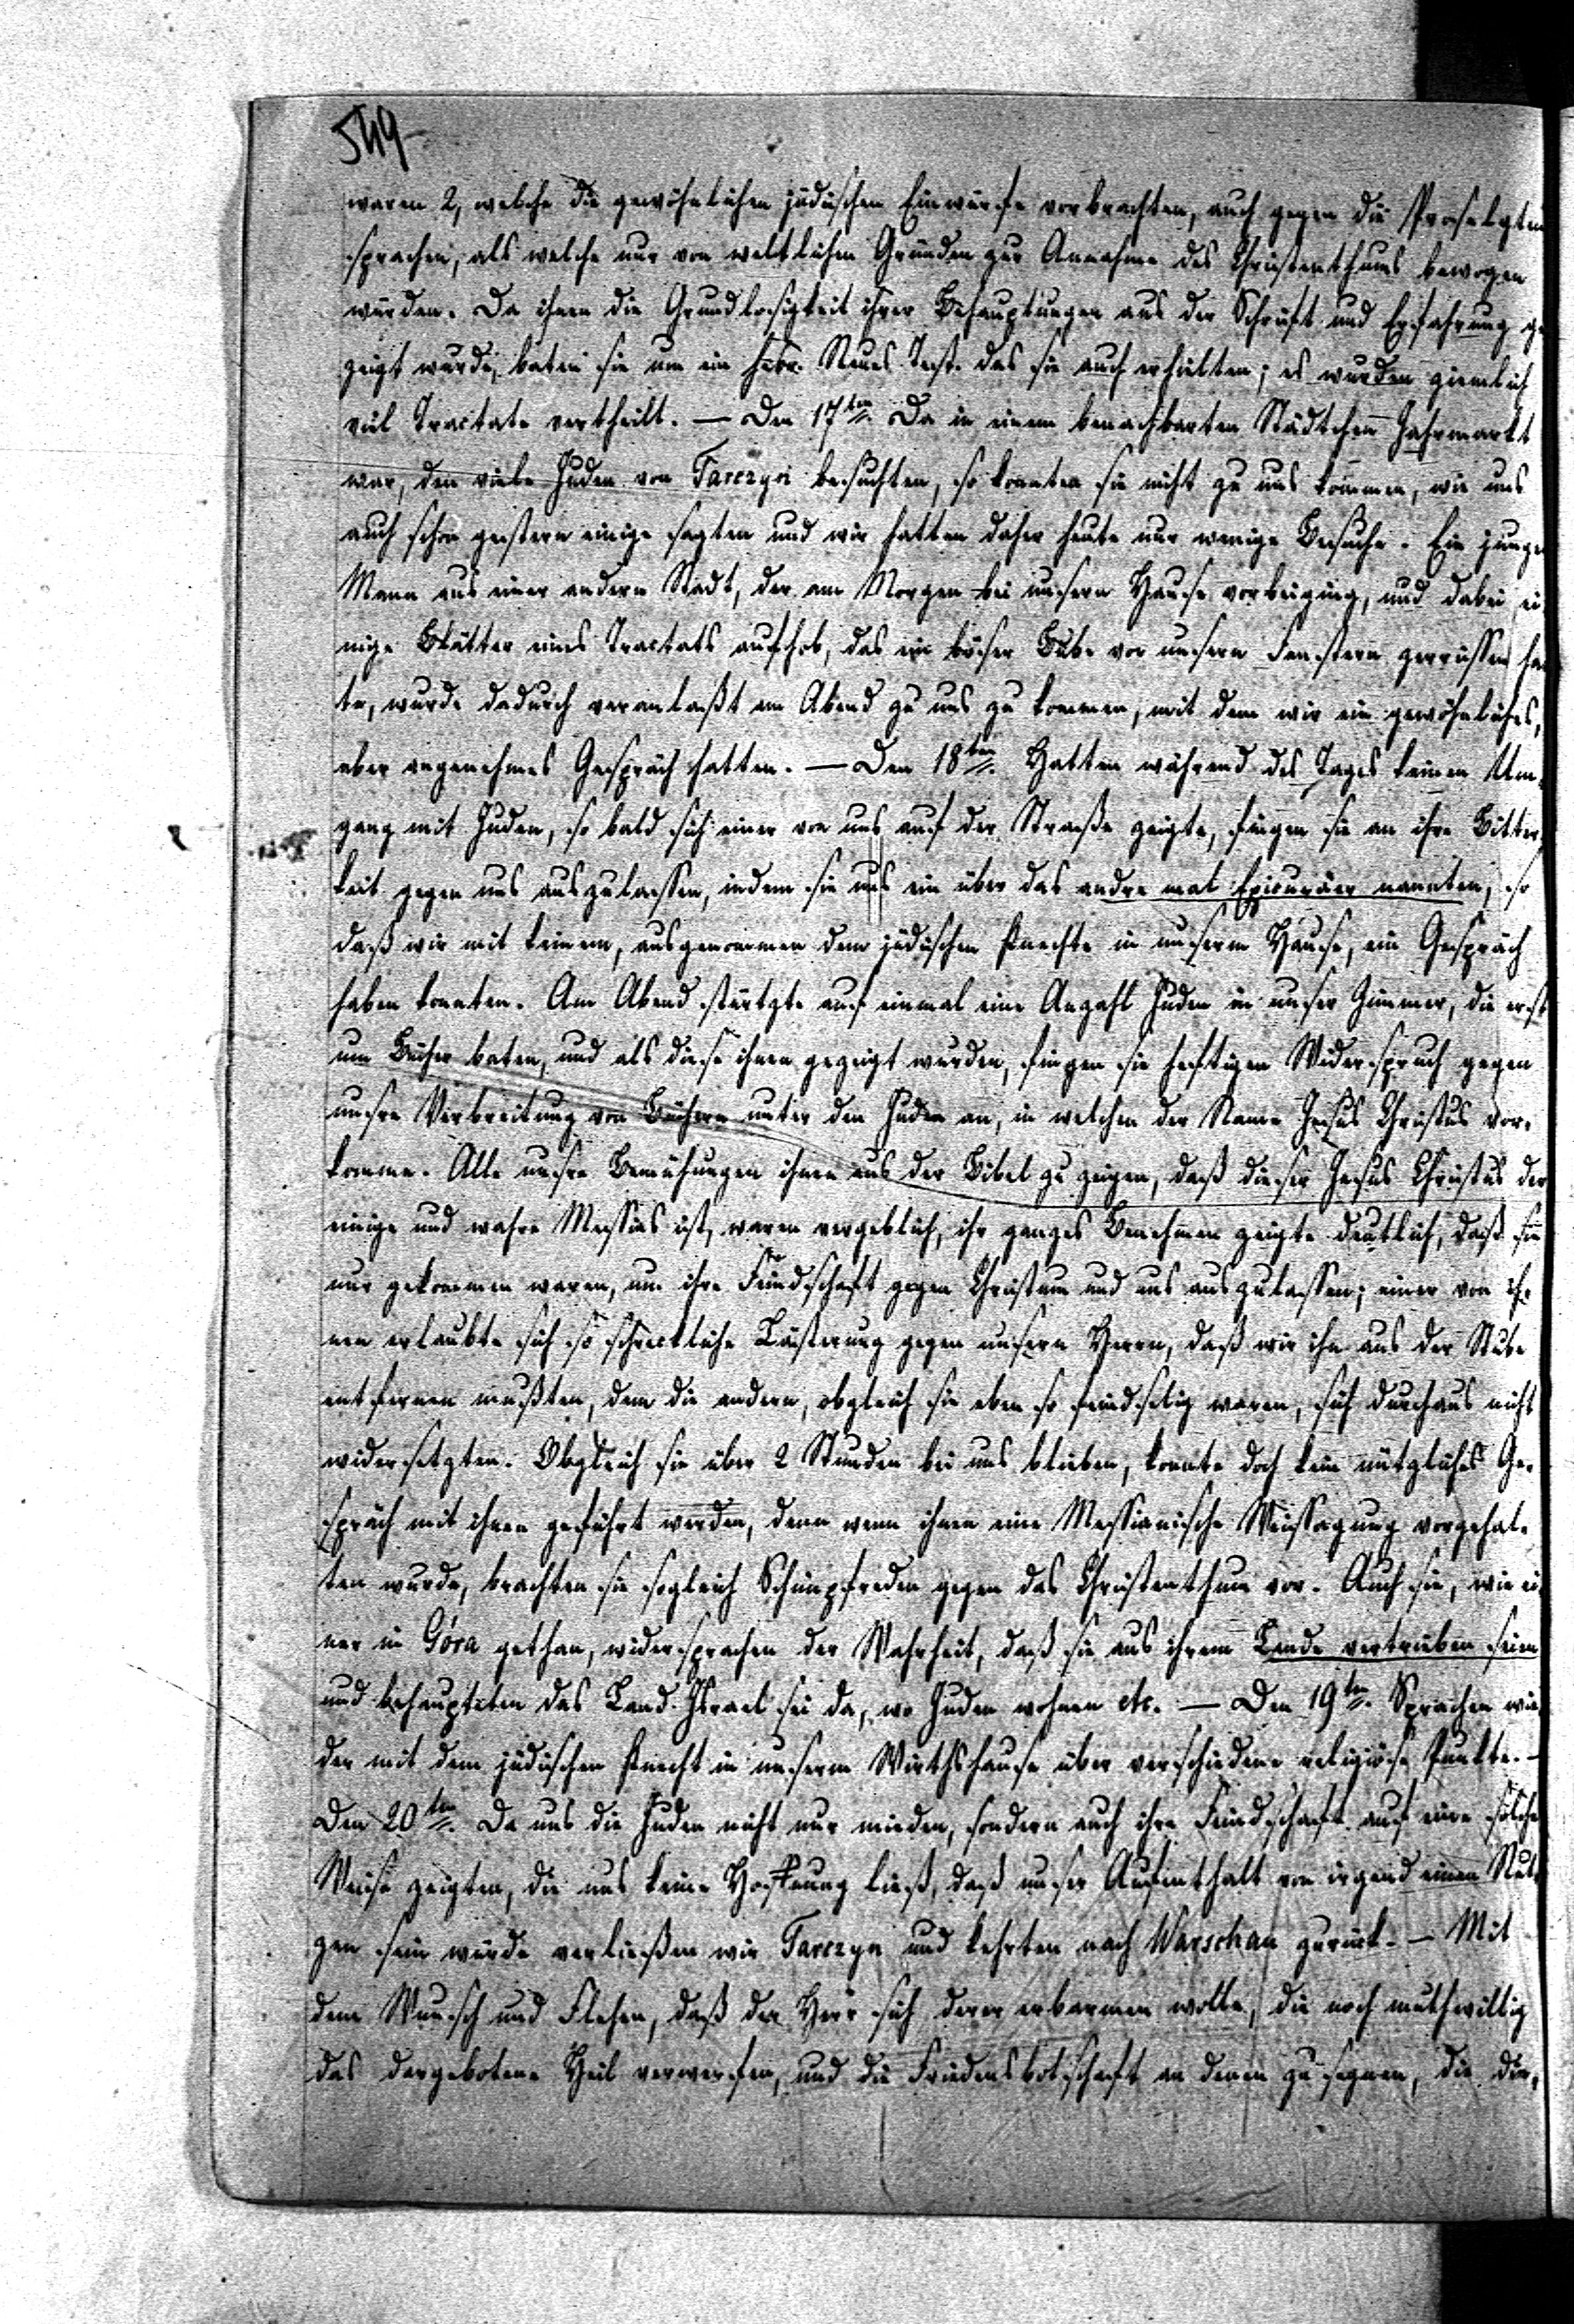 549
waren 2, welche die gewöhnlichen jüdischen Einwürfe vorbrachten, auch gegen die Proselyten
sprachen, als welche nur von weltlichen Gründen zur Annahme des Christenthums bewogen
würden. Da ihnen die Grundlosigkeit ihrer Behauptungen aus der Schrift und Erfahrung ge
zeigt wurde, baten sie um ein hebr. Neues Test. das sie auch erhielten; es wurden ziemlich
viel Tractate vertheilt. — Den 17ten Da in einem benachbarten Städtchen Jahrmarkt
war, den viele Juden von Tarczyn besuchten, so konnten sie nicht zu uns kommen, wie uns
auch schon gestern einige sagten und wir hatten daher heute nur wenige Besuche. Ein junger
Mann aus einer andern Stadt, der am Morgen bei unserm Hause vorbeiging, und dabei ei
nige Blätter eines Tractats aufhob, das ein böser Bube vor unsern Fenstern zerrissen hat
te, wurde dadurch veranlaßt am Abend zu uns zu kommen, mit dem wir ein gewöhnliches,
aber angenehmes Gespräch hatten. — Den 18ten Hatten während des Tages keinen Um-
gang mit Juden, so bald sich einer von uns auf der Straße zeigte, fingen sie an ihre Bitter
keit gegen uns auszulassen, indem sie uns ein über das andre mal Epicuräer nannten, so
daß wir mit keinem, ausgenommen dem jüdischen Knechte in unserm Hause, ein Gespräch
haben konnten. Am Abend stürtzte auf einmal eine Anzahl Juden in unser Zimmer, die erst
um Bücher baten, und als diese ihnen gezeigt wurden, fingen sie heftigen Widerspruch gegen
unsre Verbreitung von Büchern unter den Juden an, in welchen der Name Jesus Christus vor-
komme. Alle unsre Bemühungen ihnen aus der Bibel zu zeigen, daß dieser Jesus Christus der
einige und wahre Messias ist, waren vergeblich, ihr ganzes Benehmen zeigte deutlich, daß sie
nur gekommen waren, um ihre Feindschaft gegen Christum und uns auszulassen; einer von ih-
nen erlaubte sich so schreckliche Lästerung gegen unsern Herrn, daß wir ihn aus der Stube
entfernen mußten, dem die andern, obgleich sie eben so feindselig waren, sich durchaus nicht
widersetzten. Obgleich sie über 2 Stunden bei uns blieben, konnte doch kein nützliches Ge-
spräch mit ihnen geführt werden, denn wenn ihnen eine Messianische Weissagung vorgehal-
ten wurde, brachten sie sogleich Schimpfreden gegen das Christenthum vor. Auch sie, wie ei
ner in Góra gethan, widersprachen der Wahrheit, daß sie aus ihrem Lande vertrieben seien
und behaupteten das Land Israel sei da, wo Juden wohnen etc. — Den 19ten Sprachen wie
der mit dem jüdischen Knecht in unserm Wirthshause über verschiedene religiöse Punkte. —
Den 20ten Da uns die Juden nicht nur mieden, sondern auch ihre Feindschaft auf eine solche
Weise zeigten, die uns keine Hoffnung ließ, daß unser Aufenthalt von irgend einem Nut
zen sein würde verließen wir Tarczyn und kehrten nach Warschau zurück. — Mit
dem Wunsch und Flehen, daß der Herr sich derer erbarmen wolle, die noch muthwillig
das dargebotene Heil verwerfen, und die Friedensbotschaft an denen zu segnen, die die,